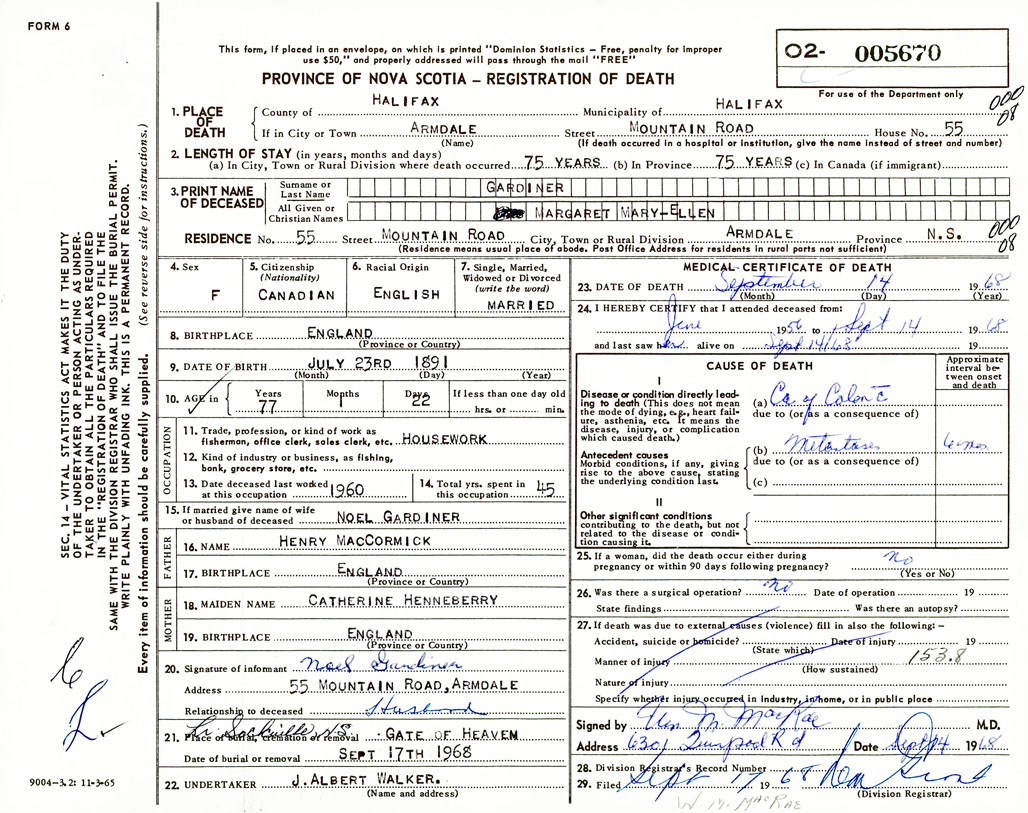 FORM 6
This form, if placed in an envelope, on which is printed "Dominion Statistics – Free, penalty for improper
use $50," and properly addressed will pass through the mail "FREE"
O2- 005670
PROVINCE OF NOVA SCOTIA – REGISTRATION OF DEATH
For use of the Department only
1. PLACE OF DEATH
County of HALIFAX Municipality of HALIFAX
000
08
If in City or Town ARMDALE Street MOUNTAIN ROAD House No. 55
(Name) (If death occurred in a hospital or institution, give the name instead of street and number)
2. LENGTH OF STAY (in years, months and days)
(a) In City, Town or Rural Division where death occurred 75 YEARS (b) In Province 75 YEARS (c) In Canada (if immigrant)
3. PRINT NAME OF DECEASED
Surname or Last Name GARDINER
All Given or Christian Names MARGARET MARY-ELLEN
000
08
RESIDENCE No. 55 Street MOUNTAIN ROAD City, Town or Rural Division ARMDALE Province N.S.
(Residence means usual place of abode. Post Office Address for residents in rural parts not sufficient)
4. Sex
F
5. Citizenship
(Nationality)
CANADIAN
6. Racial Origin
ENGLISH
7. Single, Married,
Widowed or Divorced
(write the word)
MARRIED
8. BIRTHPLACE ENGLAND
(Province or Country)
9. DATE OF BIRTH JULY 23RD 1891
(Month) (Day) (Year)
10. AGE in Years Months Days If less than one day old
77 1 22 hrs. or min.
OCCUPATION
11. Trade, profession, or kind of work as
fisherman, office clerk, sales clerk, etc. HOUSEWORK
12. Kind of industry or business, as fishing,
bank, grocery store, etc.
13. Date deceased last worked
at this occupation 1960
14. Total yrs. spent in
this occupation 45
15. If married give name of wife
or husband of deceased NOEL GARDINER
FATHER
16. NAME HENRY MACCORMICK
17. BIRTHPLACE ENGLAND
(Province or Country)
MOTHER
18. MAIDEN NAME CATHERINE HENNEBERRY
19. BIRTHPLACE ENGLAND
(Province or Country)
20. Signature of informant Noel Gardiner
Address 55 MOUNTAIN ROAD, ARMDALE
Relationship to deceased Husband
Lr Sackville N.S.
21. Place of burial, cremation or removal GATE OF HEAVEN
Date of burial or removal SEPT 17TH 1968
22. UNDERTAKER J. ALBERT WALKER.
(Name and address)
MEDICAL CERTIFICATE OF DEATH
23. DATE OF DEATH September 14 1968
(Month) (Day) (Year)
24. I HEREBY CERTIFY that I attended deceased from:
June 1956 to Sept 14 1968
and last saw her alive on Sept 14/68 19
CAUSE OF DEATH
Approximate
interval be-
tween onset
and death
I
Disease or condition directly lead-
ing to death (This does not mean
the mode of dying, e.g., heart fail-
ure, asthenia, etc. It means the
disease, injury, or complication
which caused death.)
(a) Ca of Colon c̄
due to (or as a consequence of)
Antecedent causes
Morbid conditions, if any, giving
rise to the above cause, stating
the underlying condition last.
(b) Metastases 6 mos
due to (or as a consequence of)
(c)
II
Other significant conditions
contributing to the death, but not
related to the disease or condi-
tion causing it.
25. If a woman, did the death occur either during
pregnancy or within 90 days following pregnancy? no
(Yes or No)
26. Was there a surgical operation? no Date of operation 19
State findings Was there an autopsy?
27. If death was due to external causes (violence) fill in also the following: –
Accident, suicide or homicide? Date of injury 19
(State which)
Manner of injury 153.8
(How sustained)
Nature of injury
Specify whether injury occurred in industry, in home, or in public place
Signed by Wm M. MacRae M.D.
Address 6301 Quinpool Rd Date Sept 14 1968
28. Division Registrar's Record Number
29. Filed Sept 17 1968
(Division Registrar)
W. M. MACRAE
SEC. 14 – VITAL STATISTICS ACT MAKES IT THE DUTY
OF THE UNDERTAKER OR PERSON ACTING AS UNDER-
TAKER TO OBTAIN ALL THE PARTICULARS REQUIRED
IN THE "REGISTRATION OF DEATH" AND TO FILE THE
SAME WITH THE DIVISION REGISTRAR WHO SHALL ISSUE THE BURIAL PERMIT.
WRITE PLAINLY WITH UNFADING INK. THIS IS A PERMANENT RECORD.
Every item of information should be carefully supplied. (See reverse side for instructions.)
9004–3.2: 11-3-65